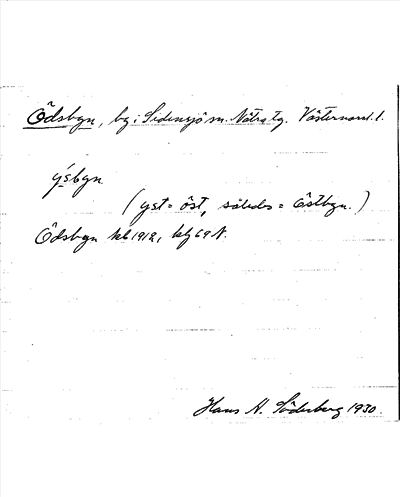 Ödsbyn, by i Sidensjö sn. Nätra tg. Västernorrl. l.
ýsbyn
(yst = öst, således = Östbyn.)
Ödsbyn kb 1912, blg 69 N.
Hans N. Söderberg 1930.